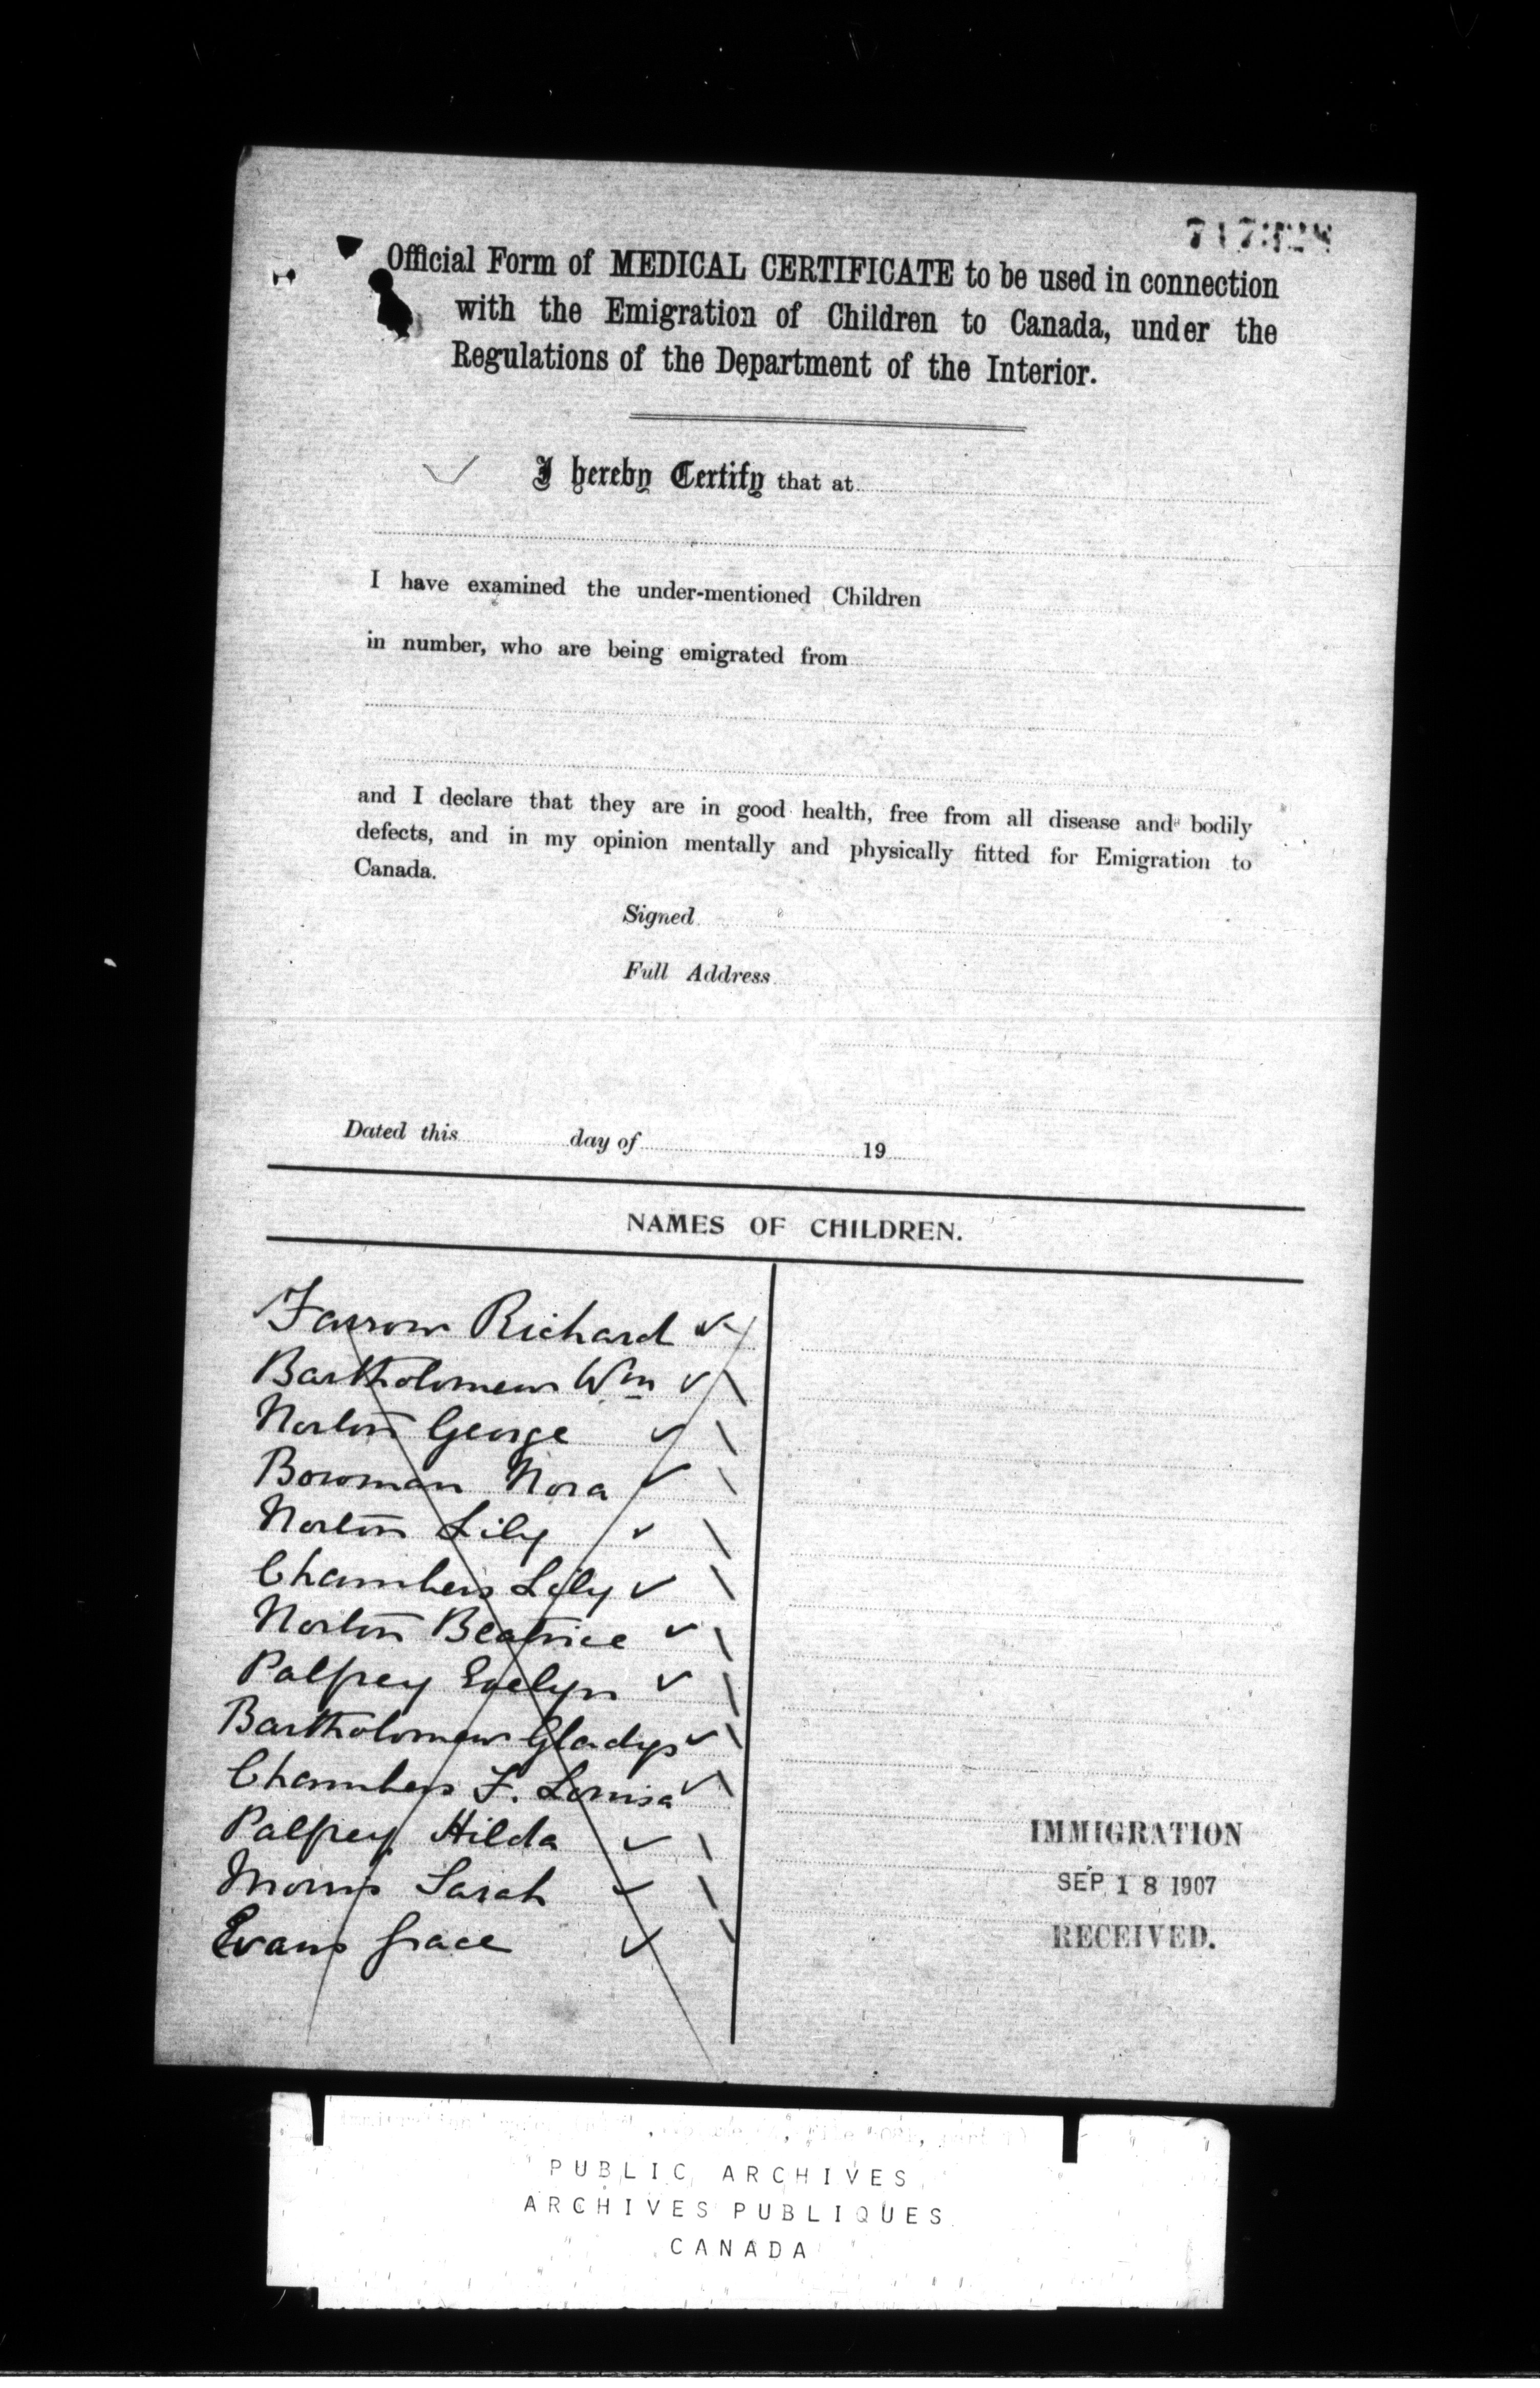 Official Form of MEDICAL CERTIFICATE to be used in connection
with the Emigration of Children to Canada, under the
Regulations of the Department of the Interior.
I hereby Certify that at
I have examined the under-mentioned Children
in number, who are being emigrated from
and I declare that they are in good health, free from all disease and bodily
defects, and in my opinion mentally and physically fitted for Emigration to
Canada.
Signed
Full Address
Dated this day of 19
NAMES OF CHILDREN.
Farrow Richard
Bartholomew Wm
Norton George
Bowman Nora
Norton Lily
Chambers Lily
Norton Beatrice
Palfrey Evelyn
Bartholomew Gladys
Chambers F. Louisa
Palfrey Hilda
Morris Sarah
Evans Grace
IMMIGRATION
SEP 18 1907
RECEIVED.
PUBLIC ARCHIVES
ARCHIVES PUBLIQUES
CANADA